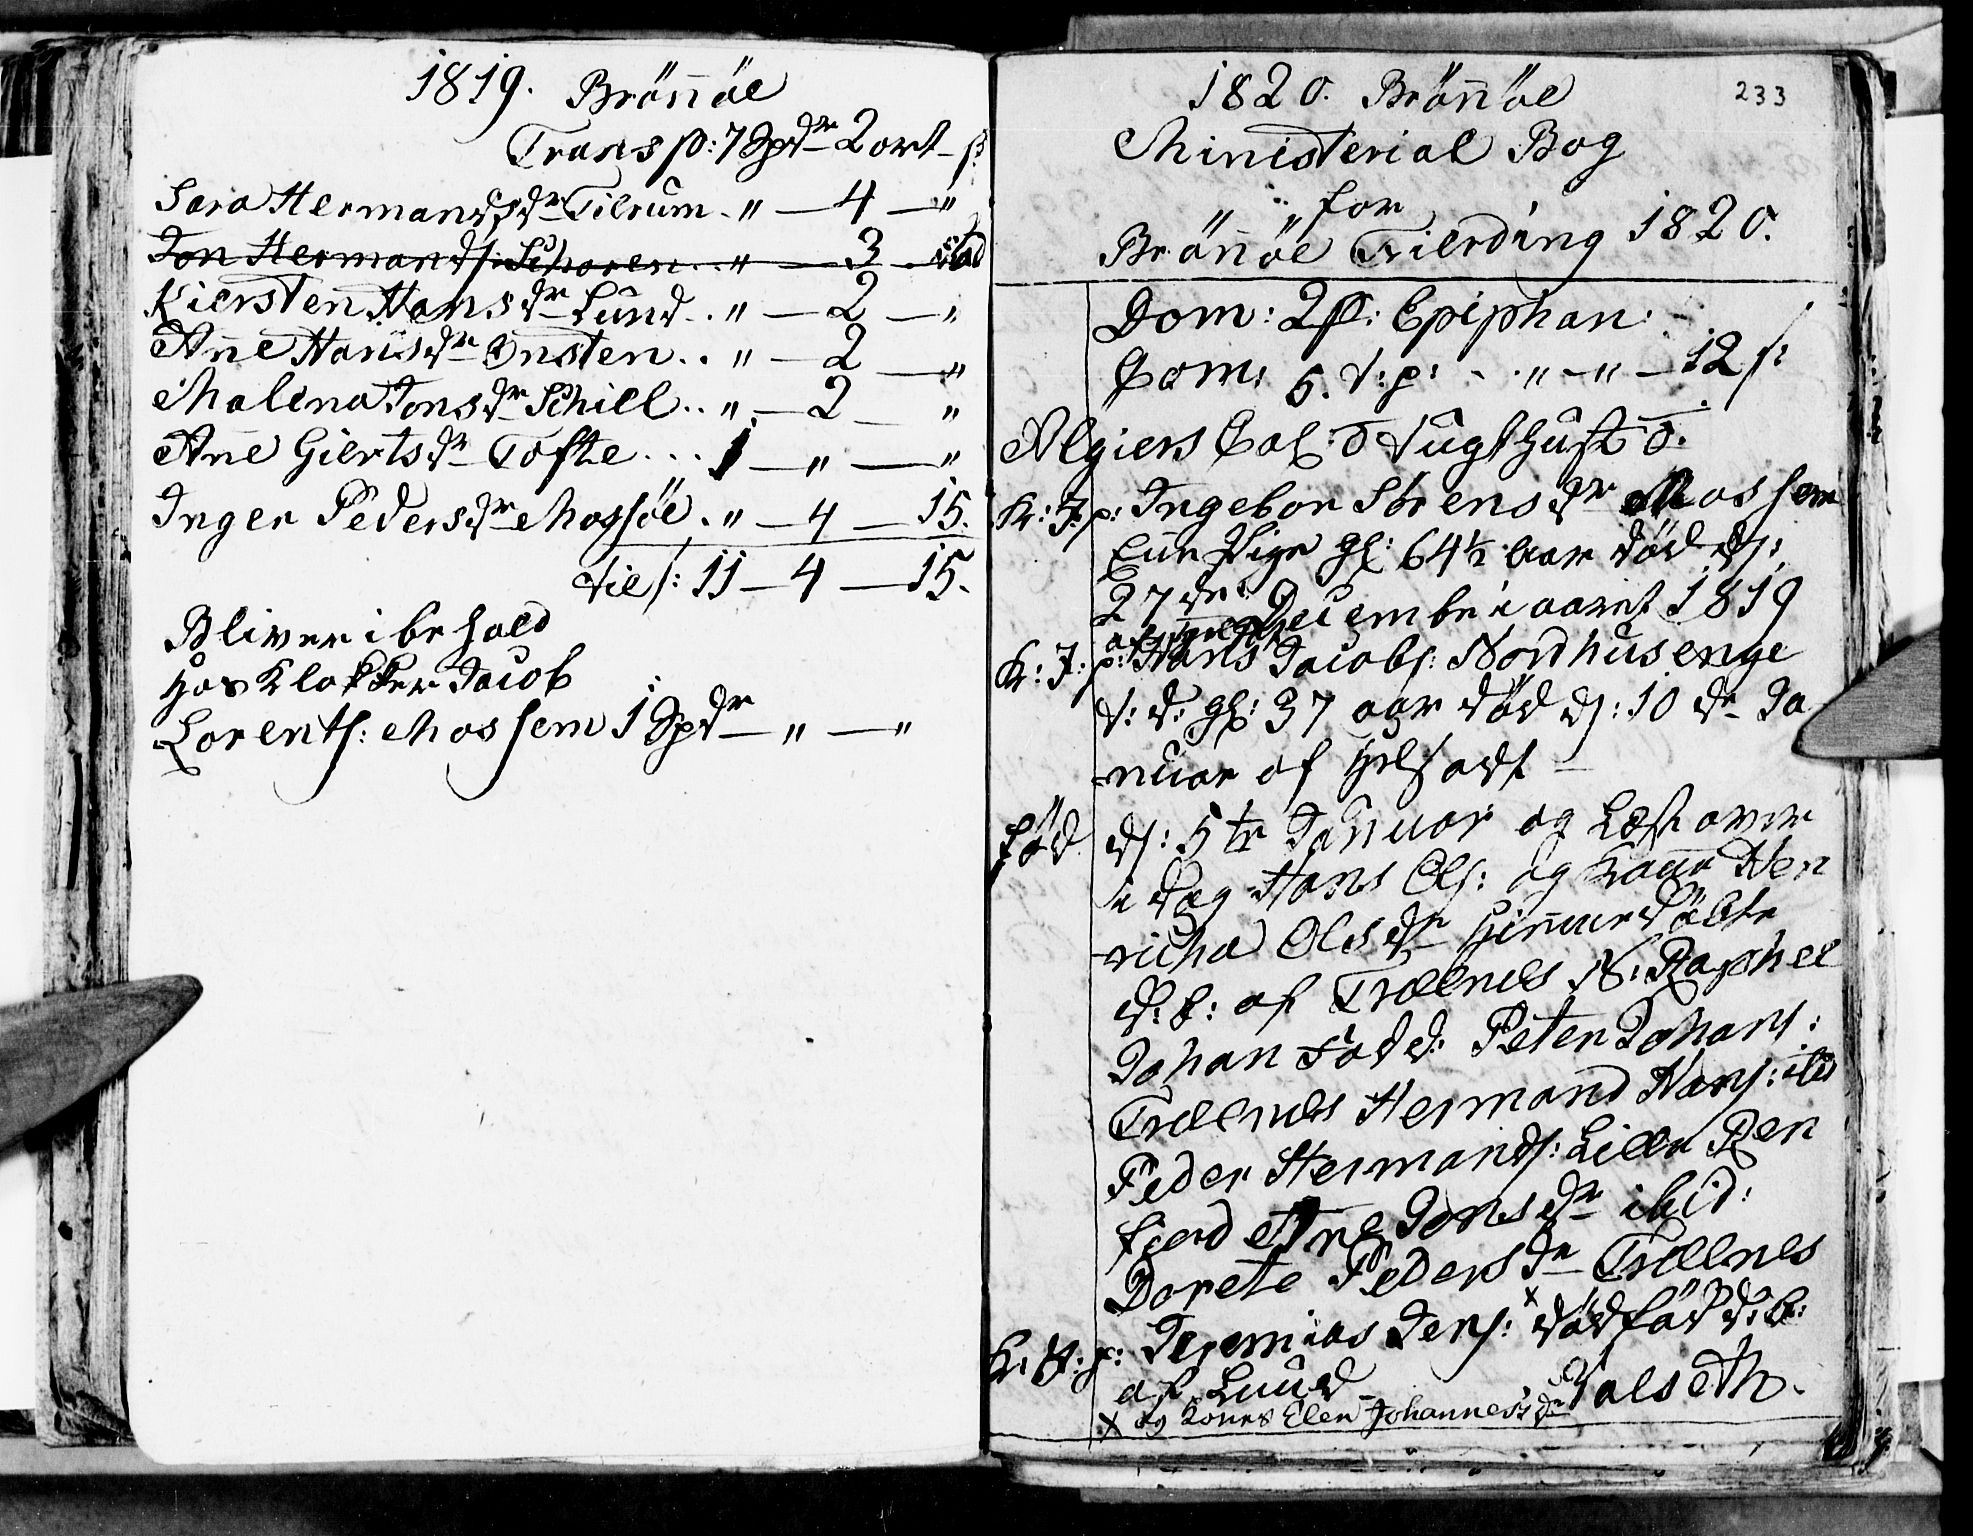 1819. Brönöe
Transp: 7 Spdr 2 ort - s:
Sara Hermandsdr Tilrum . " — 4 — "
Jon Hermands: Schoren . . " — 3
Kiersten Hansdr Lund . . " — 2 — "
Ane Hansdr Onsten . . " — 2 — "
Malena Jonsdr Schill . . " — 2 — "
Ane Giertsdr Tofte . . . 1 — " — "
Inger Pedersdr Mossöe . " — 4 — 15.
til s: 11 — 4 — 15.
Bliver i behold
hos Klokker Jacob
Lorents: Mossem 1 Spdr — " — "
1820. Brönöe
233
Ministerial Bog
for
Brönöe Fierding 1820.
Dom: 2 p: Epiphan:
Dom: 5. t: p: - . " - " - 12 s:
Algiers Cas: 0 Tugthuset 0.
K: J: p: Ingebor Sörensdr Mossem
Pige gl: 64½ aar död ds:
27de Decembr i aaret 1819
K: J: p: Hans Jacobs: Nordhus enge
gl: 37 aar död ds: 10 de Ja
nuar af
föd ds: 5te Januar og Læst over
i dag Hans Ols: og Kone Hen
richa Olsdr hiemmedöbte
d: b: af Trælnes N: Raphel
Johan Fad: Peter Johans:
Trælnes Hermand Hans: ibd
Peder Hermands: Lille Ren
fiord Ane Jonsdr ibid:
Dorete Pedersdr Trælnes
K: J: p: Jeremias Jens: x dödföd d: b:
af Lund
x og Kones Elen Johannesdr